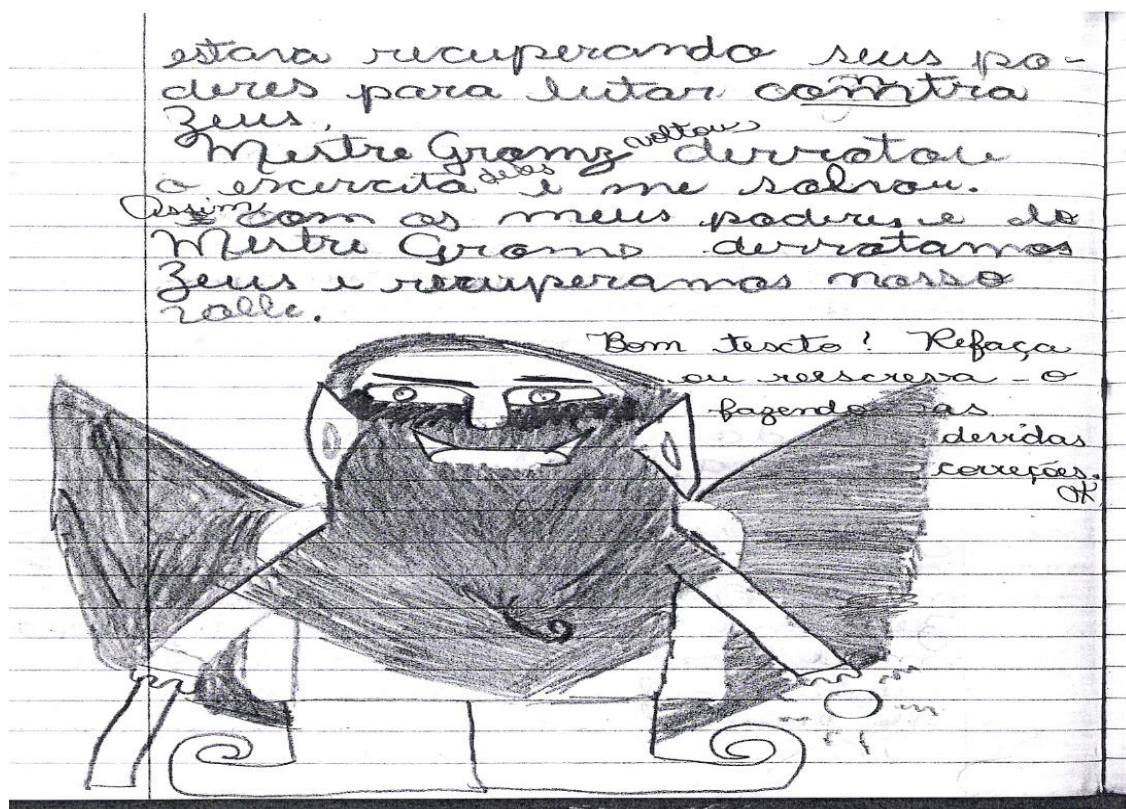 estava recuperando seus po-
deres para lutar commtra
Zeus.
Mestre Gramz voltou derrotou
o escercito deles e me salvou.
Assim com os meus poderes e do
Mestre Gramz derrotamos
Zeus e recuperamos nosso
valle.
Bom texto! Refaça
ou reescreva-o
fazendo as
devidas
correções.
OK